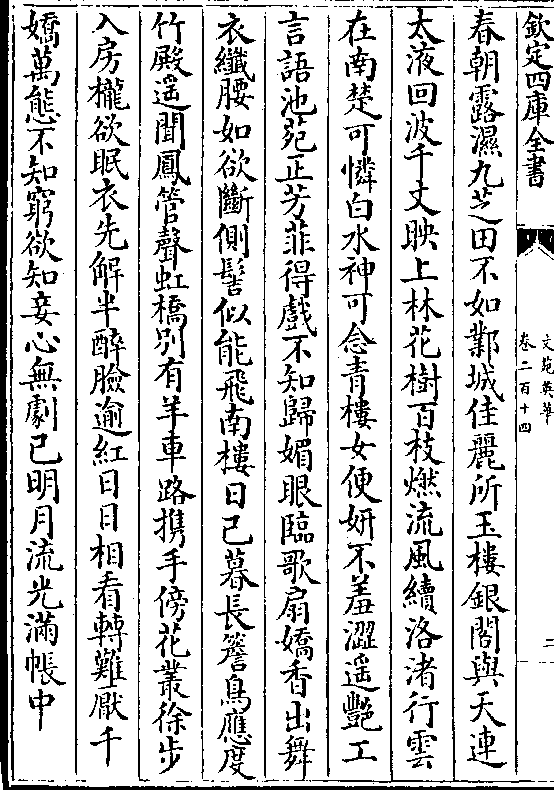 欽定四庫全書
文苑英華
卷二百十四
二
春朝露濕九芝田不如鄴城佳麗所玉樓銀閣與天連
太液回波千丈映上林花樹百枝燃流風續洛渚行雲
在南楚可憐白水神可念青樓女便妍不羞澀遥艷工
言語池苑正芳菲得戲不知歸媚眼臨歌扇嬌香出舞
衣纎腰如欲斷側髻似能飛南樓日已暮長簷鳥應度
竹殿遥聞鳳管聲虹橋别有羊車路携手傍花叢徐步
入房櫳欲眠衣先解半醉臉逾紅日日相看轉難厭千
嬌萬態不知窮欲知妾心無劇已明月流光滿帳中